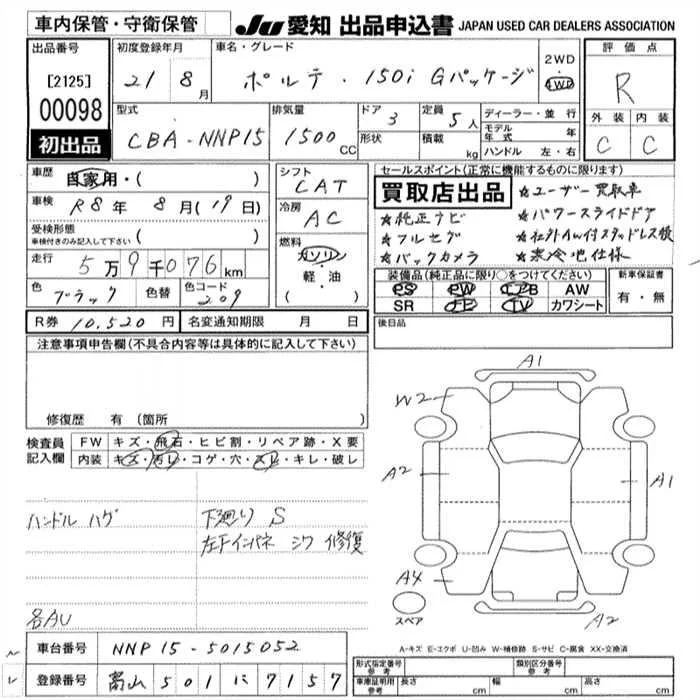 車内保管・守衛保管
JU 愛知 出品申込書 JAPAN USED CAR DEALERS ASSOCIATION
出品番号
[2125]
00098
初出品
初度登録年月
21 8月
車名・グレード
ポルテ・150i Gパッケージ
2WD
4WD
評価点
R
外装 内装
C C
型式
CBA-NNP15
排気量
1500cc
ドア 3
形状
定員 5人
積載 kg
ディーラー・並行
モデル年式 年
ハンドル 左・右
車歴 自家用・( )
車検 R8年 8月(19日)
受検形態
車検付きのみ記入して下さい ( )
走行 5万9千076km
色 ブラック 色替 色コード 209
シフト
CAT
冷房
AC
燃料
ガソリン
軽・油
( )
R券 10,520円 名変通知期限 月 日
セールスポイント(正常に機能するものに限ります)
買取店出品
★純正ナビ
★フルセグ
★バックカメラ
★ユーザー買取車
★パワースライドドア
★社外AW付スタッドレス積
★寒冷地仕様
装備品(純正品に限り○をつけてください)
PS PW エアB AW
SR ナビ TV カワシート
新車保証書
有・無
後日品
注意事項申告欄(不具合内容等は具体的に記入して下さい)
修復歴 有 (箇所 )
検査員記入欄
FW キズ・飛石・ヒビ割・リペア跡・X要
内装 キズ・汚レ・コゲ・穴・スレ・キレ・破レ
ハンドル ハゲ
各AU
下廻り S
左Fインパネ シワ 修復
A1
W2
A2
A1
A4
A2
スペア
A-キズ E-エクボ U-凹み W-補修跡 S-サビ C-腐食 XX-交換済
車台番号 NNP15-5015052
登録番号 富山 501 に 7157
形式指定番号
参考
類別区分番号
参考
車庫証明用
参考
長さ cm 幅 cm 高さ cm